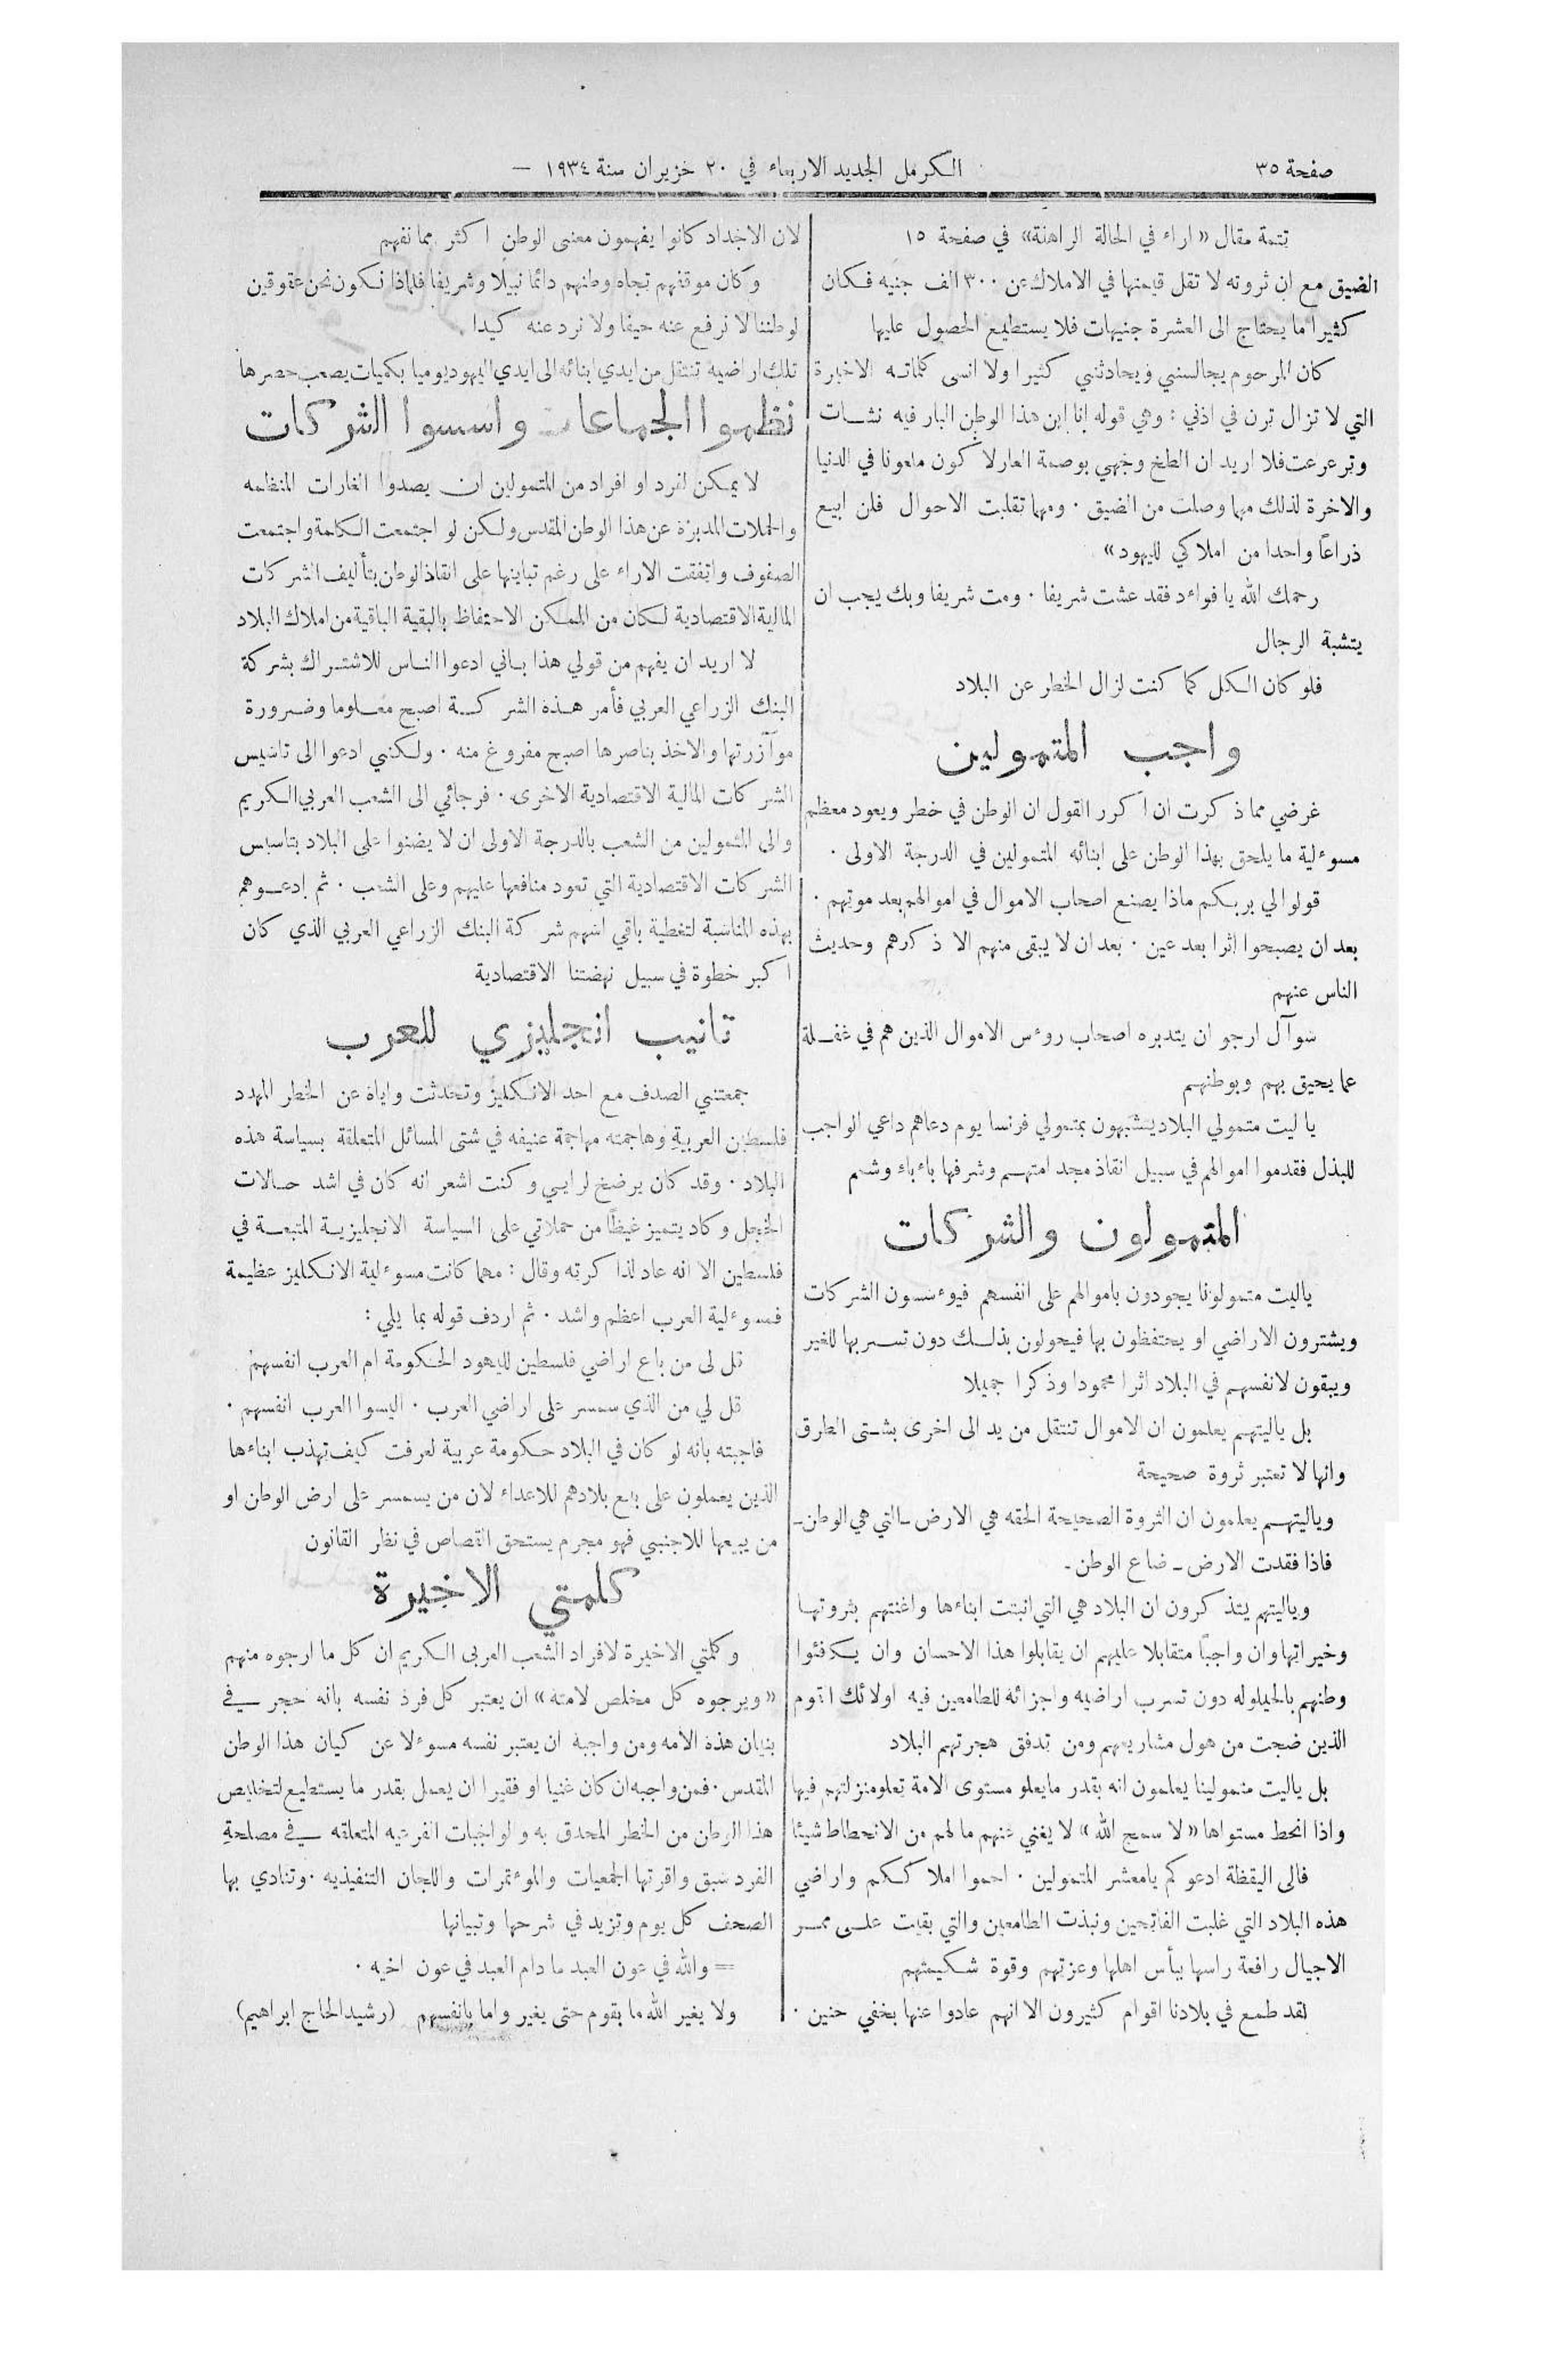 صفحة ٣٥
الكرمل الجديد الاربعاء في ٢٠ حزيران سنة ١٩٣٤ —
تتمة مقال «اراء في الحالة الراهنة» في صفحة ١٥
الضيق مع ان ثروته لا تقل قيمتها في الاملاك عن ٣٠٠ الف جنيه فكان
كثيرا ما يحتاج الى العشرة جنيهات فلا يستطيع الحصول عليها
كان المرحوم يجالسني ويحادثني كثيرا ولا انسى كلماته الاخيرة
التي لا تزال ترن في اذني : وهي قوله انا ابن هذا الوطن البار فيه نشات
وترعرعت فلا اريد ان الطخ وجهي بوصمة العار لا كون ملعونا في الدنيا
والاخرة لذلك مهما وصلت من الضيق . ومهما تقلبت الاحوال فلن ابيع
ذراعاً واحدا من املاكي لليهود»
رحمك الله يا فواءد فقد عشت شريفا . ومت شريفا وبك يجب ان
يتشبة الرجال
فلو كان الكل كما كنت لزال الخطر عن البلاد
واجب المتمولين
غرضي مما ذكرت ان اكرر القول ان الوطن في خطر ويعود معظم
مسوءلية ما يلحق بهذا الوطن على ابنائه المتمولين في الدرجة الاولى .
قولوا لي بربكم ماذا يصنع اصحاب الاموال في اموالهم بعد موتهم .
بعد ان يصبحوا اثرا بعد عين . بعد ان لا يبقى منهم الا ذكرهم وحديث
الناس عنهم
سوآل ارجو ان يتدبره اصحاب روءس الاموال الذين هم في غفلة
عما يحيق بهم وبوطنهم
يا ليت متمولي البلاد يتشبهون بمتمولي فرنسا يوم دعاهم داعي الواجب
للبذل فقدموا اموالهم في سبيل انقاذ مجد امتهم وشرفها باءباء وشمم
المتمولون والشركات
ياليت متمولونا يجودون باموالهم على انفسهم فيوءسسون الشركات
ويشترون الاراضي او يحتفظون بها فيحولون بذلك دون تسربها للغير
ويبقون لانفسهم في البلاد اثرا محمودا وذكرا جميلا
بل ياليتهم يعلمون ان الاموال تنتقل من يد الى اخرى بشتى الطرق
وانها لا تعتبر ثروة صحيحة
وياليتهم يعلمون ان الثروة الصحيحة الحقه هي الارض ـ التي هي الوطن ـ
فاذا فقدت الارض ـ ضاع الوطن ـ
وياليتهم يتذكرون ان البلاد هي التي انبتت ابناءها واغنتهم بثروتها
وخيراتها وان واجباً متقابلا عليهم ان يقابلوا هذا الاحسان وان يكافئوا
وطنهم بالحيلوله دون تسرب اراضيه واجزائه للطامعين فيه اولائك القوم
الذين ضجت من هول مشاريعهم ومن تدفق هجرتهم البلاد
بل ياليت متمولينا يعلمون انه بقدر ما يعلو مستوى الامة تعلو منزلتهم فيها
واذا انحط مستواها «لا سمح الله» لا يغني عنهم مالهم من الانحطاط شيئا
فالى اليقظة ادعوكم يامعشر المتمولين . احموا املاككم واراضي
هذه البلاد التي غلبت الفاتحين ونبذت الطامعين والتي بقيت على ممر
الاجيال رافعة راسها ببأس اهلها وعزتهم وقوة شكيمتهم
لقد طمع في بلادنا اقوام كثيرون الا انهم عادوا عنها بخفي حنين .
لان الاجداد كانوا يفهمون معنى الوطن اكثر مما نفهم
وكان موقفهم تجاه وطنهم دائما نبيلا وشريفا فلماذا نكون نحن عقوقين
لوطننا لا نرفع عنه حيفا ولا نرد عنه كيدا .
تلك اراضيه تنتقل من ايدي ابنائه الى ايدي اليهود يوميا بكميات يصعب حصرها
نظموا الجماعات واسسوا الشركات
لا يمكن لفرد او افراد من المتمولين ان يصدوا الغارات المنظمه
والحملات المدبرة عن هذا الوطن المقدس ولكن لو اجتمعت الكلمة واجتمعت
الصفوف واتفقت الاراء على رغم تباينها على انقاذ الوطن بتأليف الشركات
المالية الاقتصادية لكان من الممكن الاحتفاظ بالبقية الباقية من املاك البلاد
لا اريد ان يفهم من قولي هذا باني ادعوا الناس للاشتراك بشركة
البنك الزراعي العربي فأمر هذه الشركة اصبح معلوما وضرورة
موآزرتها والاخذ بناصرها اصبح مفروغ منه . ولكنني ادعوا الى تاسيس
الشركات المالية الاقتصادية الاخرى . فرجائي الى الشعب العربي الكريم
والى المتمولين من الشعب بالدرجة الاولى ان لا يضنوا على البلاد بتاسيس
الشركات الاقتصادية التي تعود منافعها عليهم وعلى الشعب . ثم ادعوهم
بهذه المناسبة لتغطية باقي اسهم شركة البنك الزراعي العربي الذي كان
اكبر خطوة في سبيل نهضتنا الاقتصادية
تانيب انجليزي للعرب
جمعتني الصدف مع احد الانكليز وتحدثت واياه عن الخطر المهدد
فلسطين العربية وهاجمته مهاجمة عنيفه في شتى المسائل المتعلقة بسياسة هذه
البلاد . وقد كان يرضخ لرايي وكنت اشعر انه كان في اشد حالات
الخجل وكاد يتميز غيظاً من حملاتي على السياسة الانجليزية المتبعة في
فلسطين الا انه عاد لذاكرته وقال : مهما كانت مسوءلية الانكليز عظيمة
فمسوءلية العرب اعظم واشد . ثم اردف قوله بما يلي :
قل لي من باع اراضي فلسطين لليهود الحكومة ام العرب انفسهم
قل لي من الذي سمسر على اراضي العرب . اليسوا العرب انفسهم .
فاجبته بانه لو كان في البلاد حكومة عربية لعرفت كيف تهذب ابناءها
الذين يعملون على بيع بلادهم للاعداء لان من يسمسر على ارض الوطن او
من يبيعها للاجنبي فهو مجرم يستحق القصاص في نظر القانون
كلمتي الاخيرة
وكلمتي الاخيرة لافراد الشعب العربي الكريم ان كل ما ارجوه منهم
«ويرجوه كل مخلص لامته» ان يعتبر كل فرد نفسه بانه حجر في
بنيان هذه الامه ومن واجبه ان يعتبر نفسه مسوءلا عن كيان هذا الوطن
المقدس . فمن واجبه ان كان غنيا او فقيرا ان يعمل بقدر ما يستطيع لتخليص
هذا الوطن من الخطر المحدق به والواجبات الفرعيه المتعلقه في مصلحة
الفرد سبق واقرتها الجمعيات والموءتمرات واللجان التنفيذيه . وتنادي بها
الصحف كل يوم وتزيد في شرحها وتبيانها
= والله في عون العبد ما دام العبد في عون اخيه .
ولا يغير الله ما بقوم حتى يغير واما بانفسهم (رشيد الحاج ابراهيم)